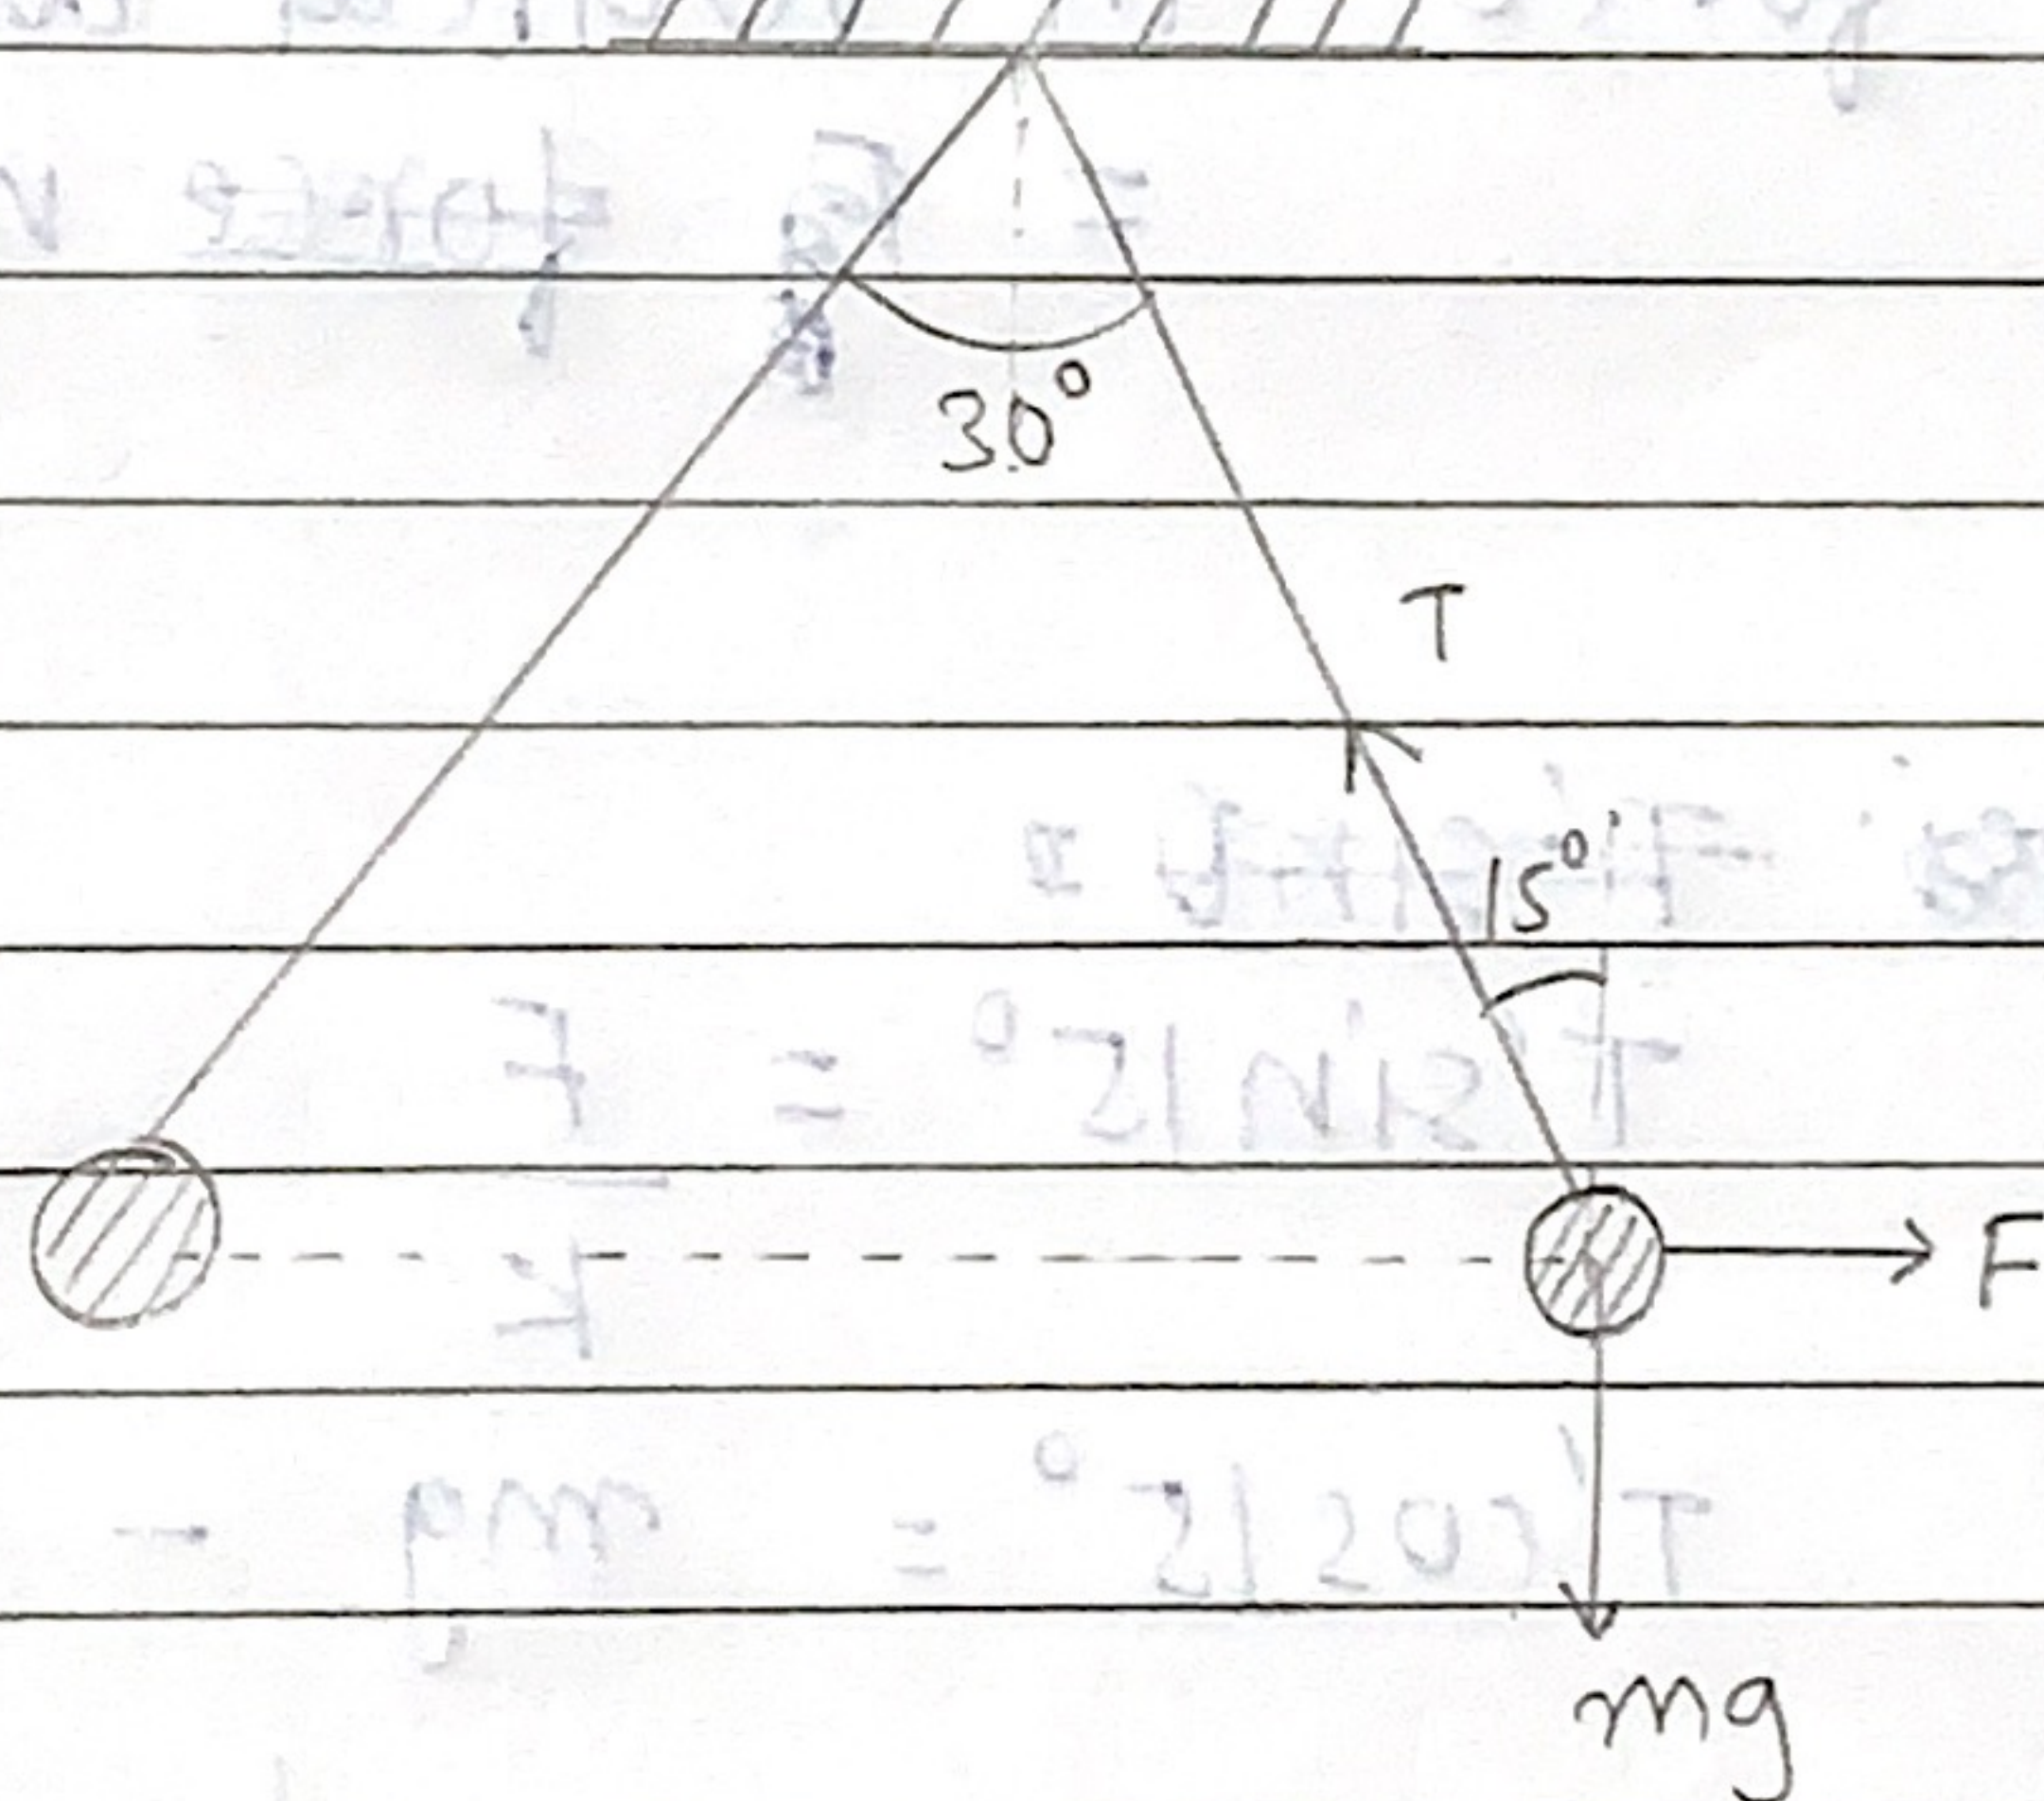 30°
T
15°
F
mg